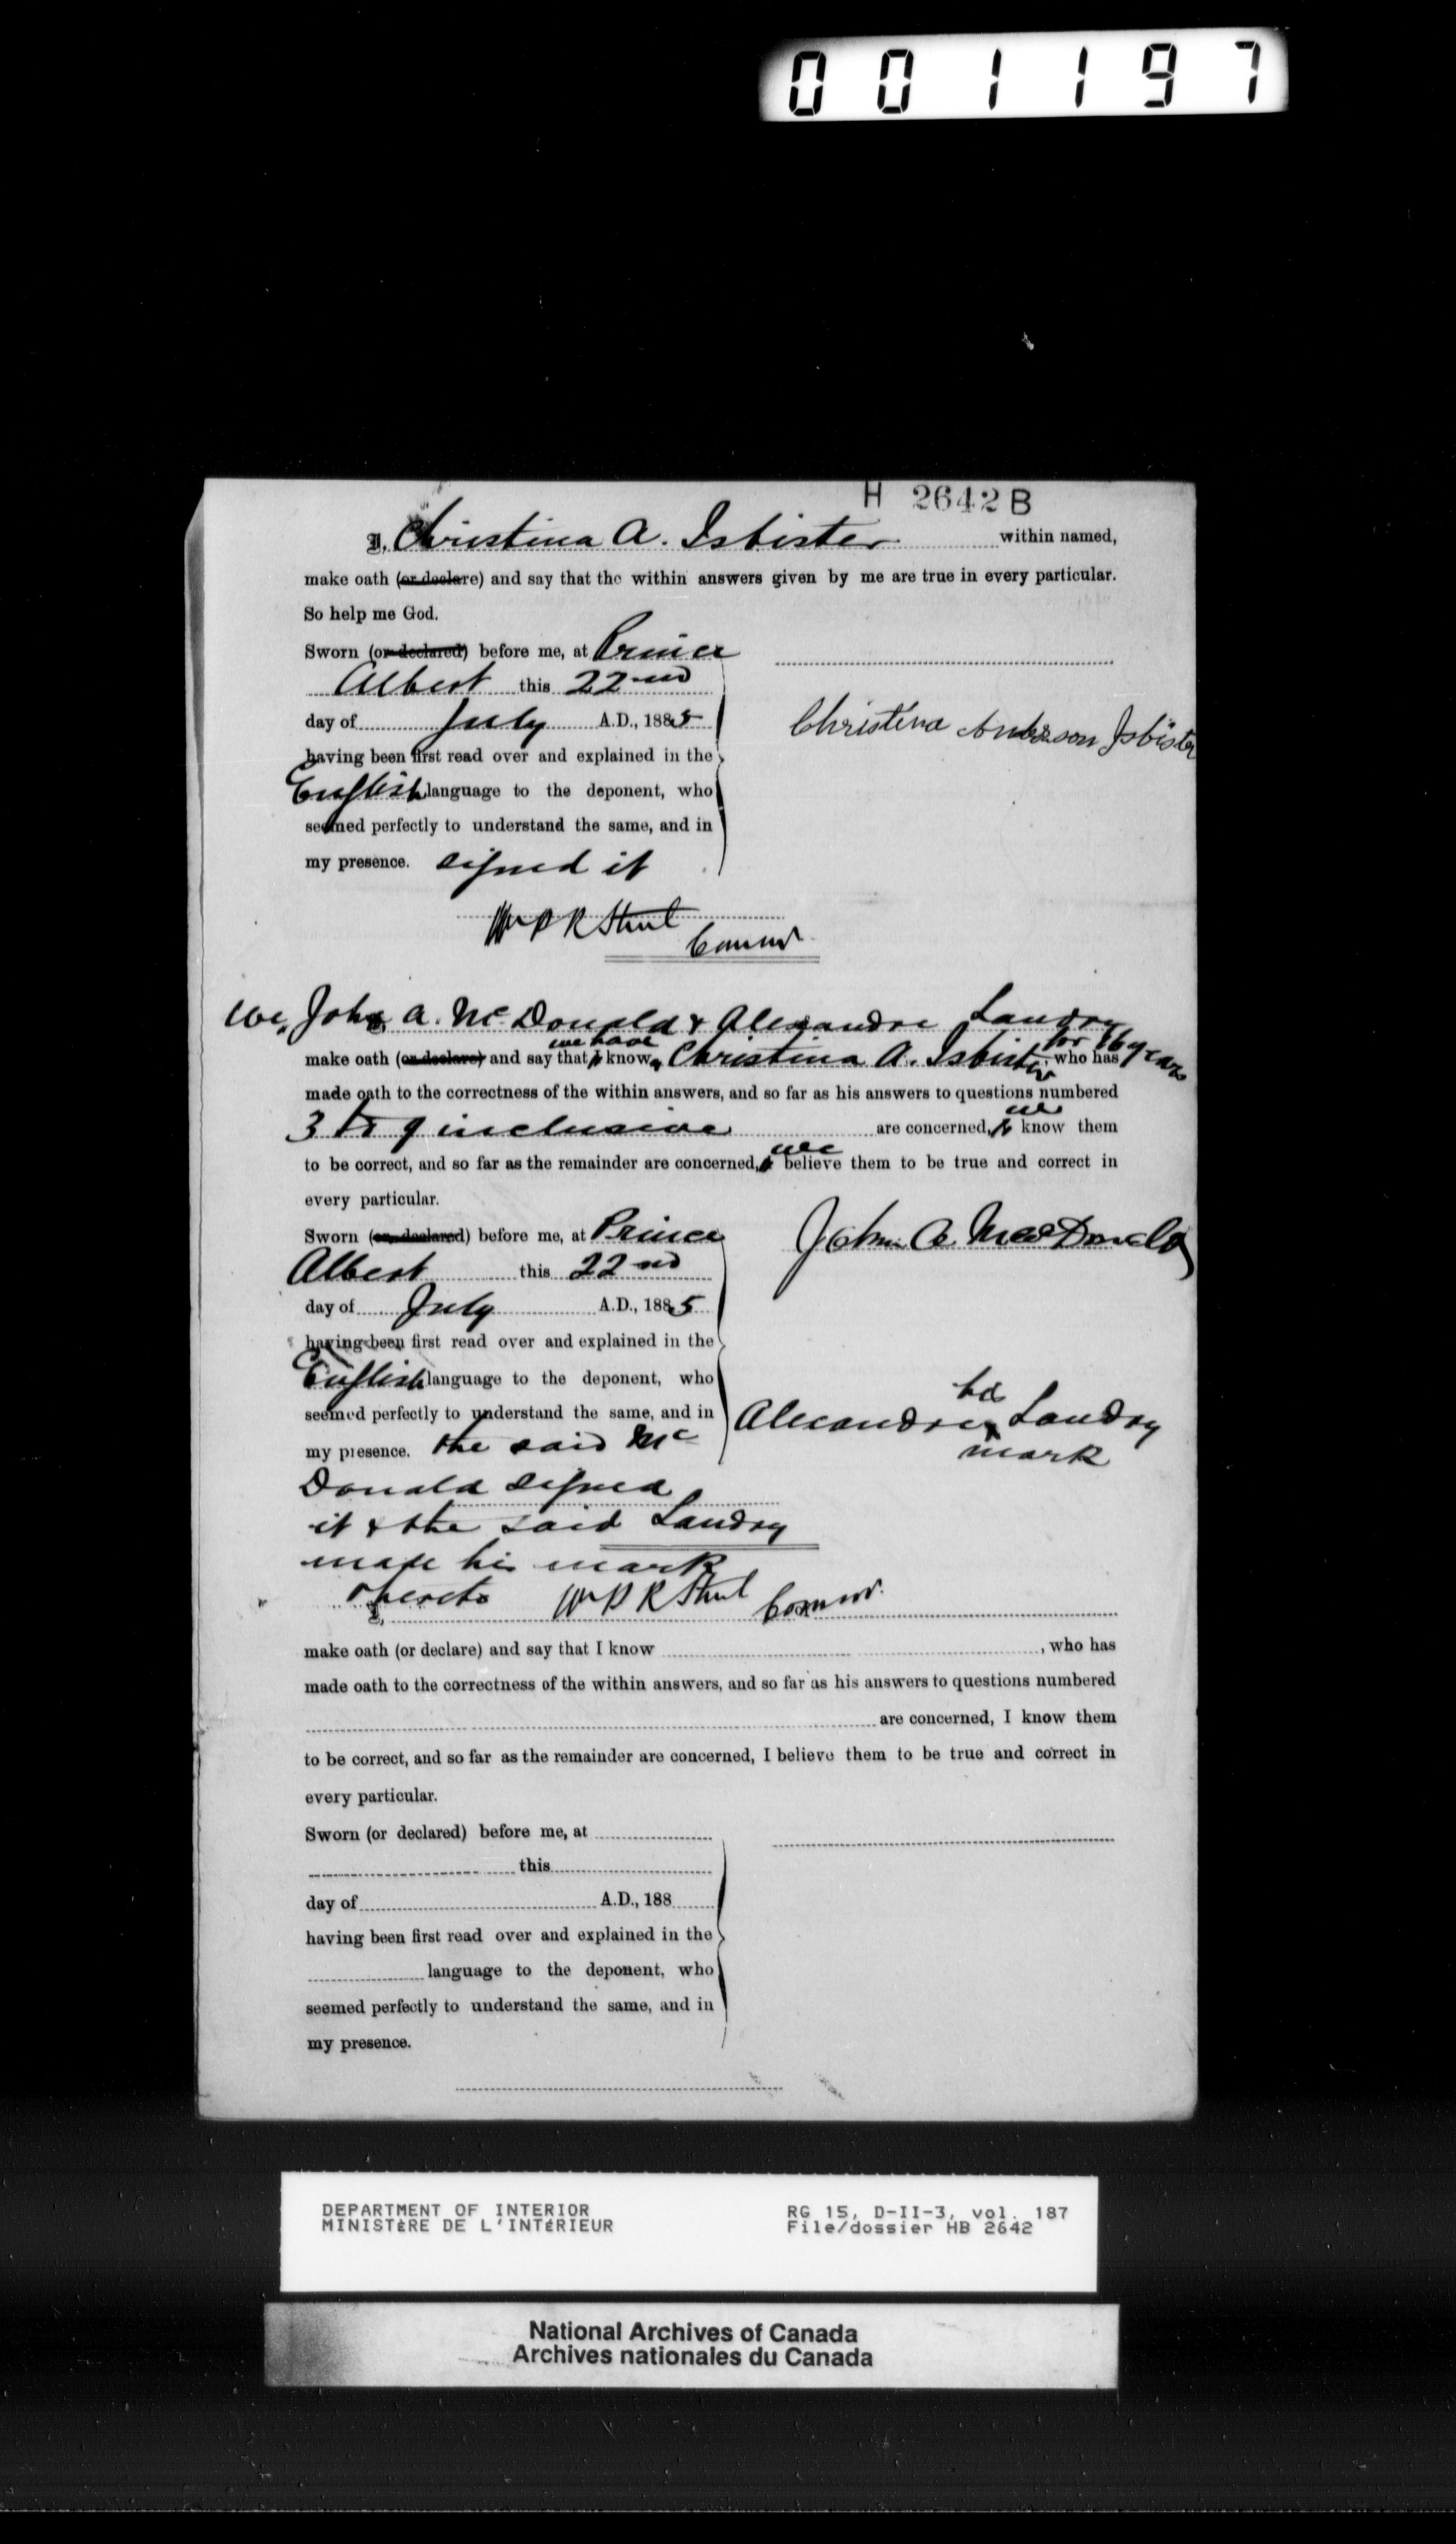 001197
H 2642 B
I, Christina A. Isbister within named,
make oath (or declare) and say that the within answers given by me are true in every particular.
So help me God.
Sworn (or declared) before me, at Prince
Albert this 22nd
day of July A.D., 1885
having been first read over and explained in the
English language to the deponent, who
seemed perfectly to understand the same, and in
my presence. signed it
Christina Anderson Isbister
Wm P R Street
Commr
We, John A. McDonald & Alexandre Landry
make oath (or declare) and say that we have known Christina A. Isbister for 16 years who has
made oath to the correctness of the within answers, and so far as his answers to questions numbered
3 to 9 inclusive are concerned, we know them
to be correct, and so far as the remainder are concerned, we believe them to be true and correct in
every particular.
Sworn (or declared) before me, at Prince
Albert this 22nd
day of July A.D., 1885
having been first read over and explained in the
English language to the deponent, who
seemed perfectly to understand the same, and in
my presence. the said Mc
Donald signed
it & the said Landry
made his mark
thereto Wm P R Street Commr.
John A MacDonald
his
Alexandre x Landry
mark
I,
make oath (or declare) and say that I know , who has
made oath to the correctness of the within answers, and so far as his answers to questions numbered
are concerned, I know them
to be correct, and so far as the remainder are concerned, I believe them to be true and correct in
every particular.
Sworn (or declared) before me, at
this
day of A.D., 188
having been first read over and explained in the
language to the deponent, who
seemed perfectly to understand the same, and in
my presence.
DEPARTMENT OF INTERIOR
MINISTÈRE DE L'INTÉRIEUR
RG 15, D-II-3, vol. 187
File/dossier HB 2642
National Archives of Canada
Archives nationales du Canada